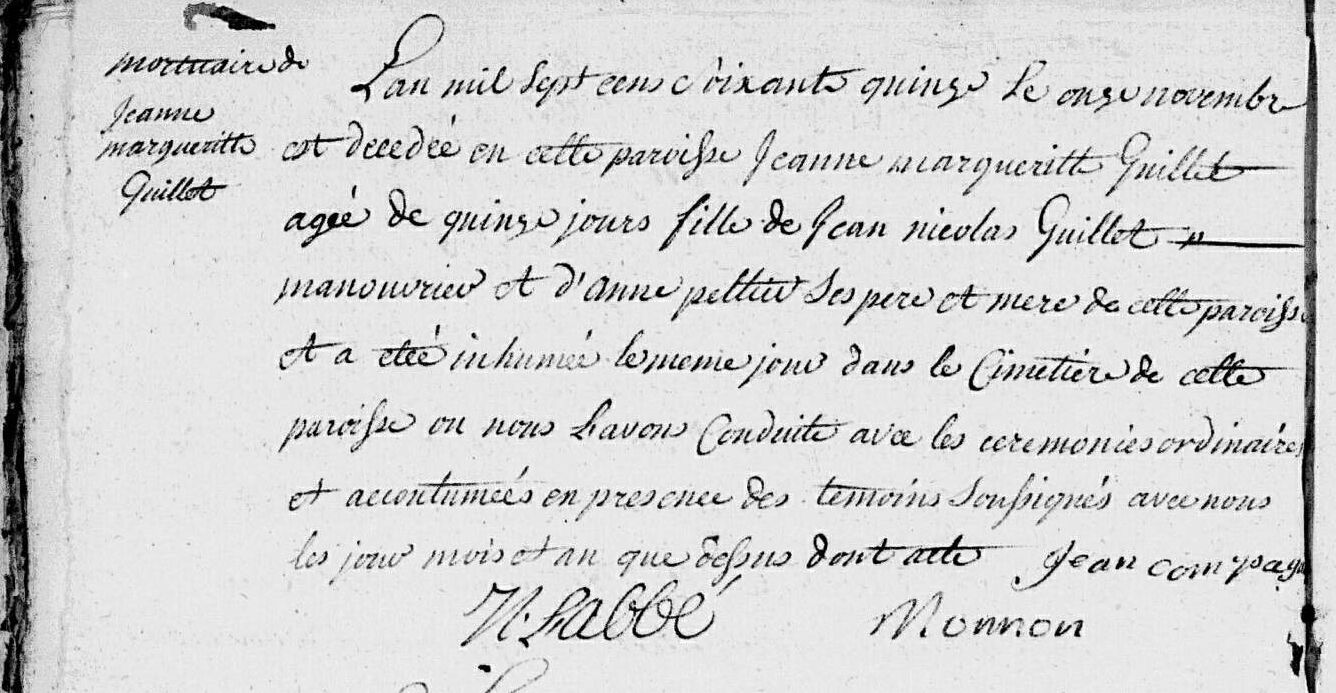 mortuaire de
Jeanne
margueritte
Guillet
Lan mil sept cens soixante quinze le onze novembre
est decedeé en cette paroisse Jeanne margueritte Guillet
ageé de quinze jours fille de Jean nicolas Guillet
manouvrier et d'anne peltier ses pere et mere de cette paroisse
et a eteé inhumeé le meme jour dans le Cimetiére de cette
paroisse ou nous Lavons Conduite avec les ceremonies ordinaires
et accoutumeés en presence des temoins soussignés avec nous
les jour mois et an que dessus dont acte Jean compag
N. Labbé Monnon